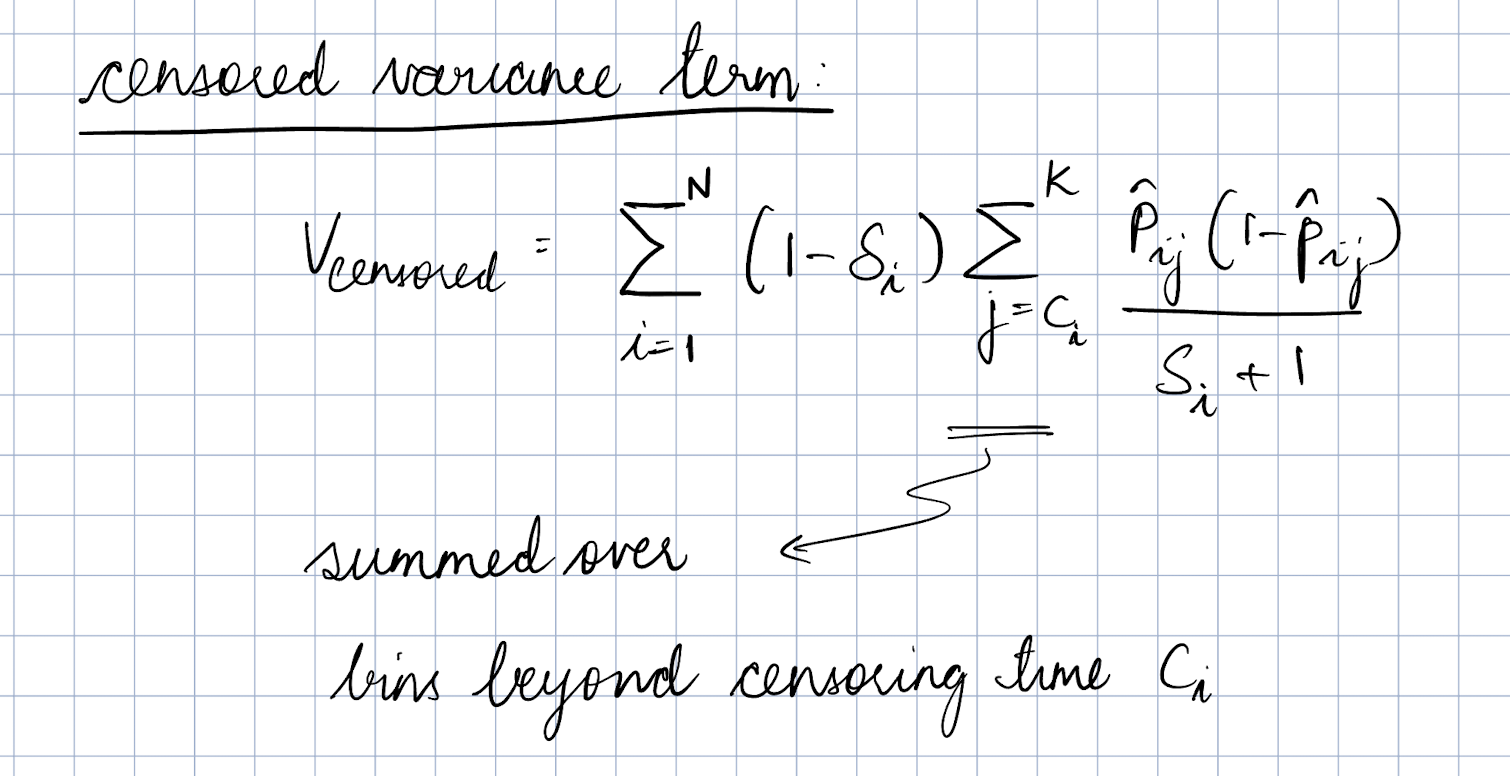 censored variance term:
V_censored = \sum_{i=1}^{N} (1-δ_i) \sum_{j=C_i}^{K} \frac{\hat{p}_{ij}(1-\hat{p}_{ij})}{S_i+1}
summed over
bins beyond censoring time C_i